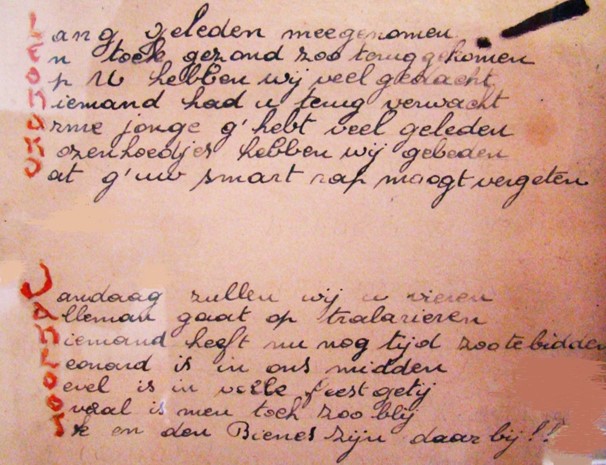 Lang geleden meegenomen
En toch gezond zoo terug gekomen
Op U hebben wij veel gedacht
Niemand had u terug verwacht
Arme jonge g'hebt veel geleden
Rozenhoedjes hebben wij gebeden
Dat g'uw smart rap moogt vergeten
Vandaag zullen wij u vieren
Alleman gaat op tralarieren
Niemand heeft nu nog tijd zoo te bidden
Leonard is in ons midden
Oevel is in volle feestgetij
Overal is men toch zoo blij
en den Bienes zijn daar bij!!